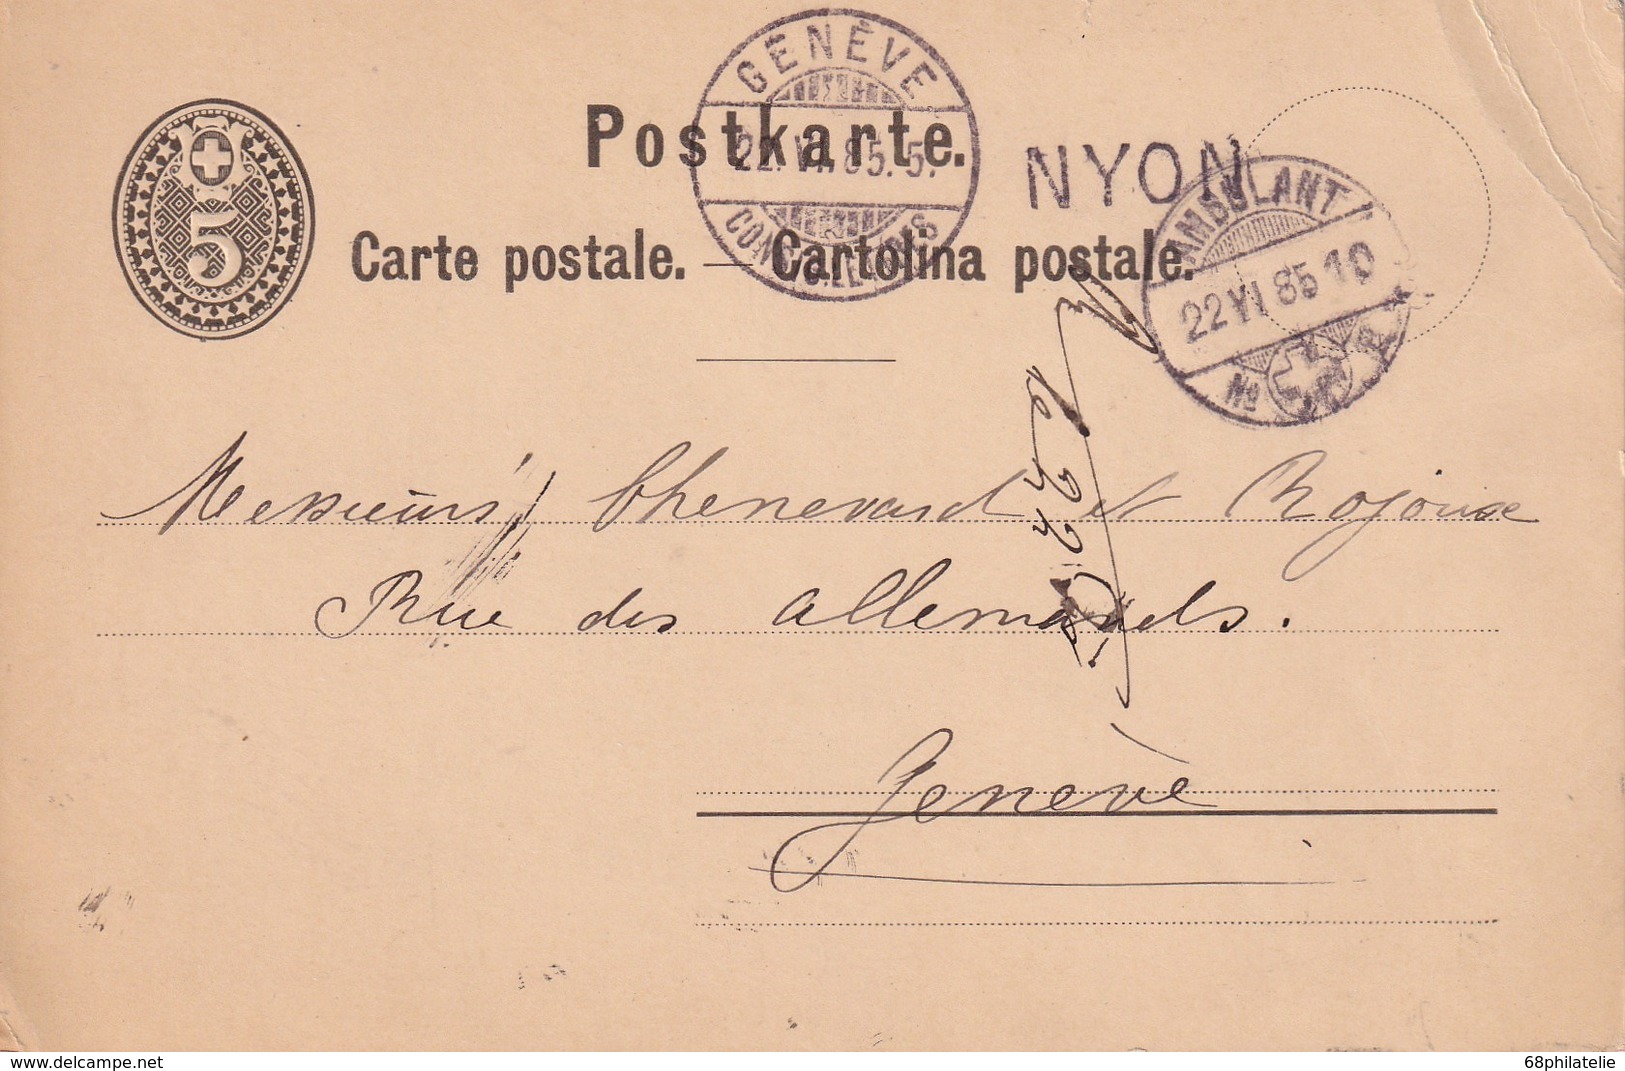 GENÈVE
22. VI. 85. 5.
Postkarte.
NYON
AMBULANT
22 VI 85 10
No
5
Carte postale. — Cartolina postale.
Messieurs Chenevard et Rojoux
Rue des Allemands.
Genève
www.delcampe.net
68philatelie